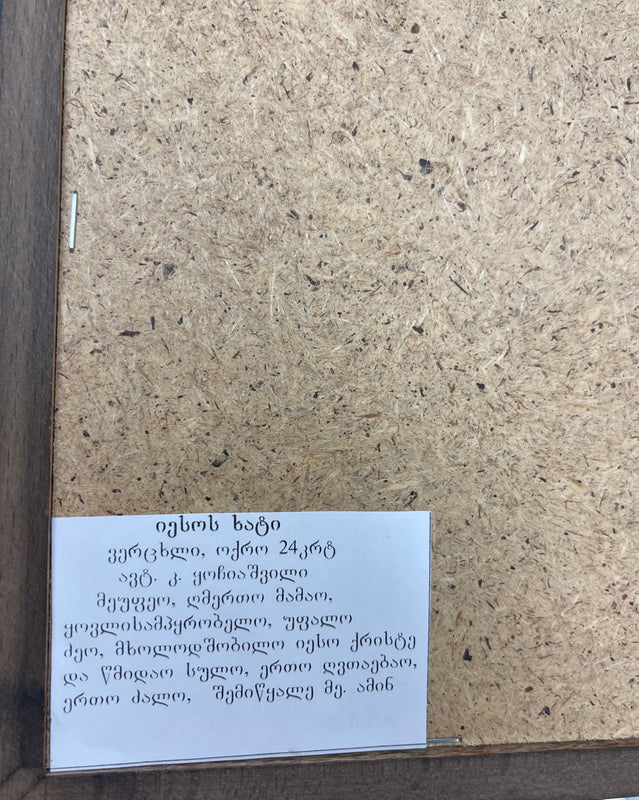 იესოს ხატი
ვერცხლი, ოქრო 24კრტ
ავტ. კ. ყოჩიაშვილი
მეუფეო, ღმერთო მამაო,
ყოვლისამპყრობელო, უფალო
ძეო, მხოლოდშობილო იესო ქრისტე
და წმიდაო სულო, ერთო ღვთაებაო,
ერთო ძალო, შემიწყალე მე. ამინ